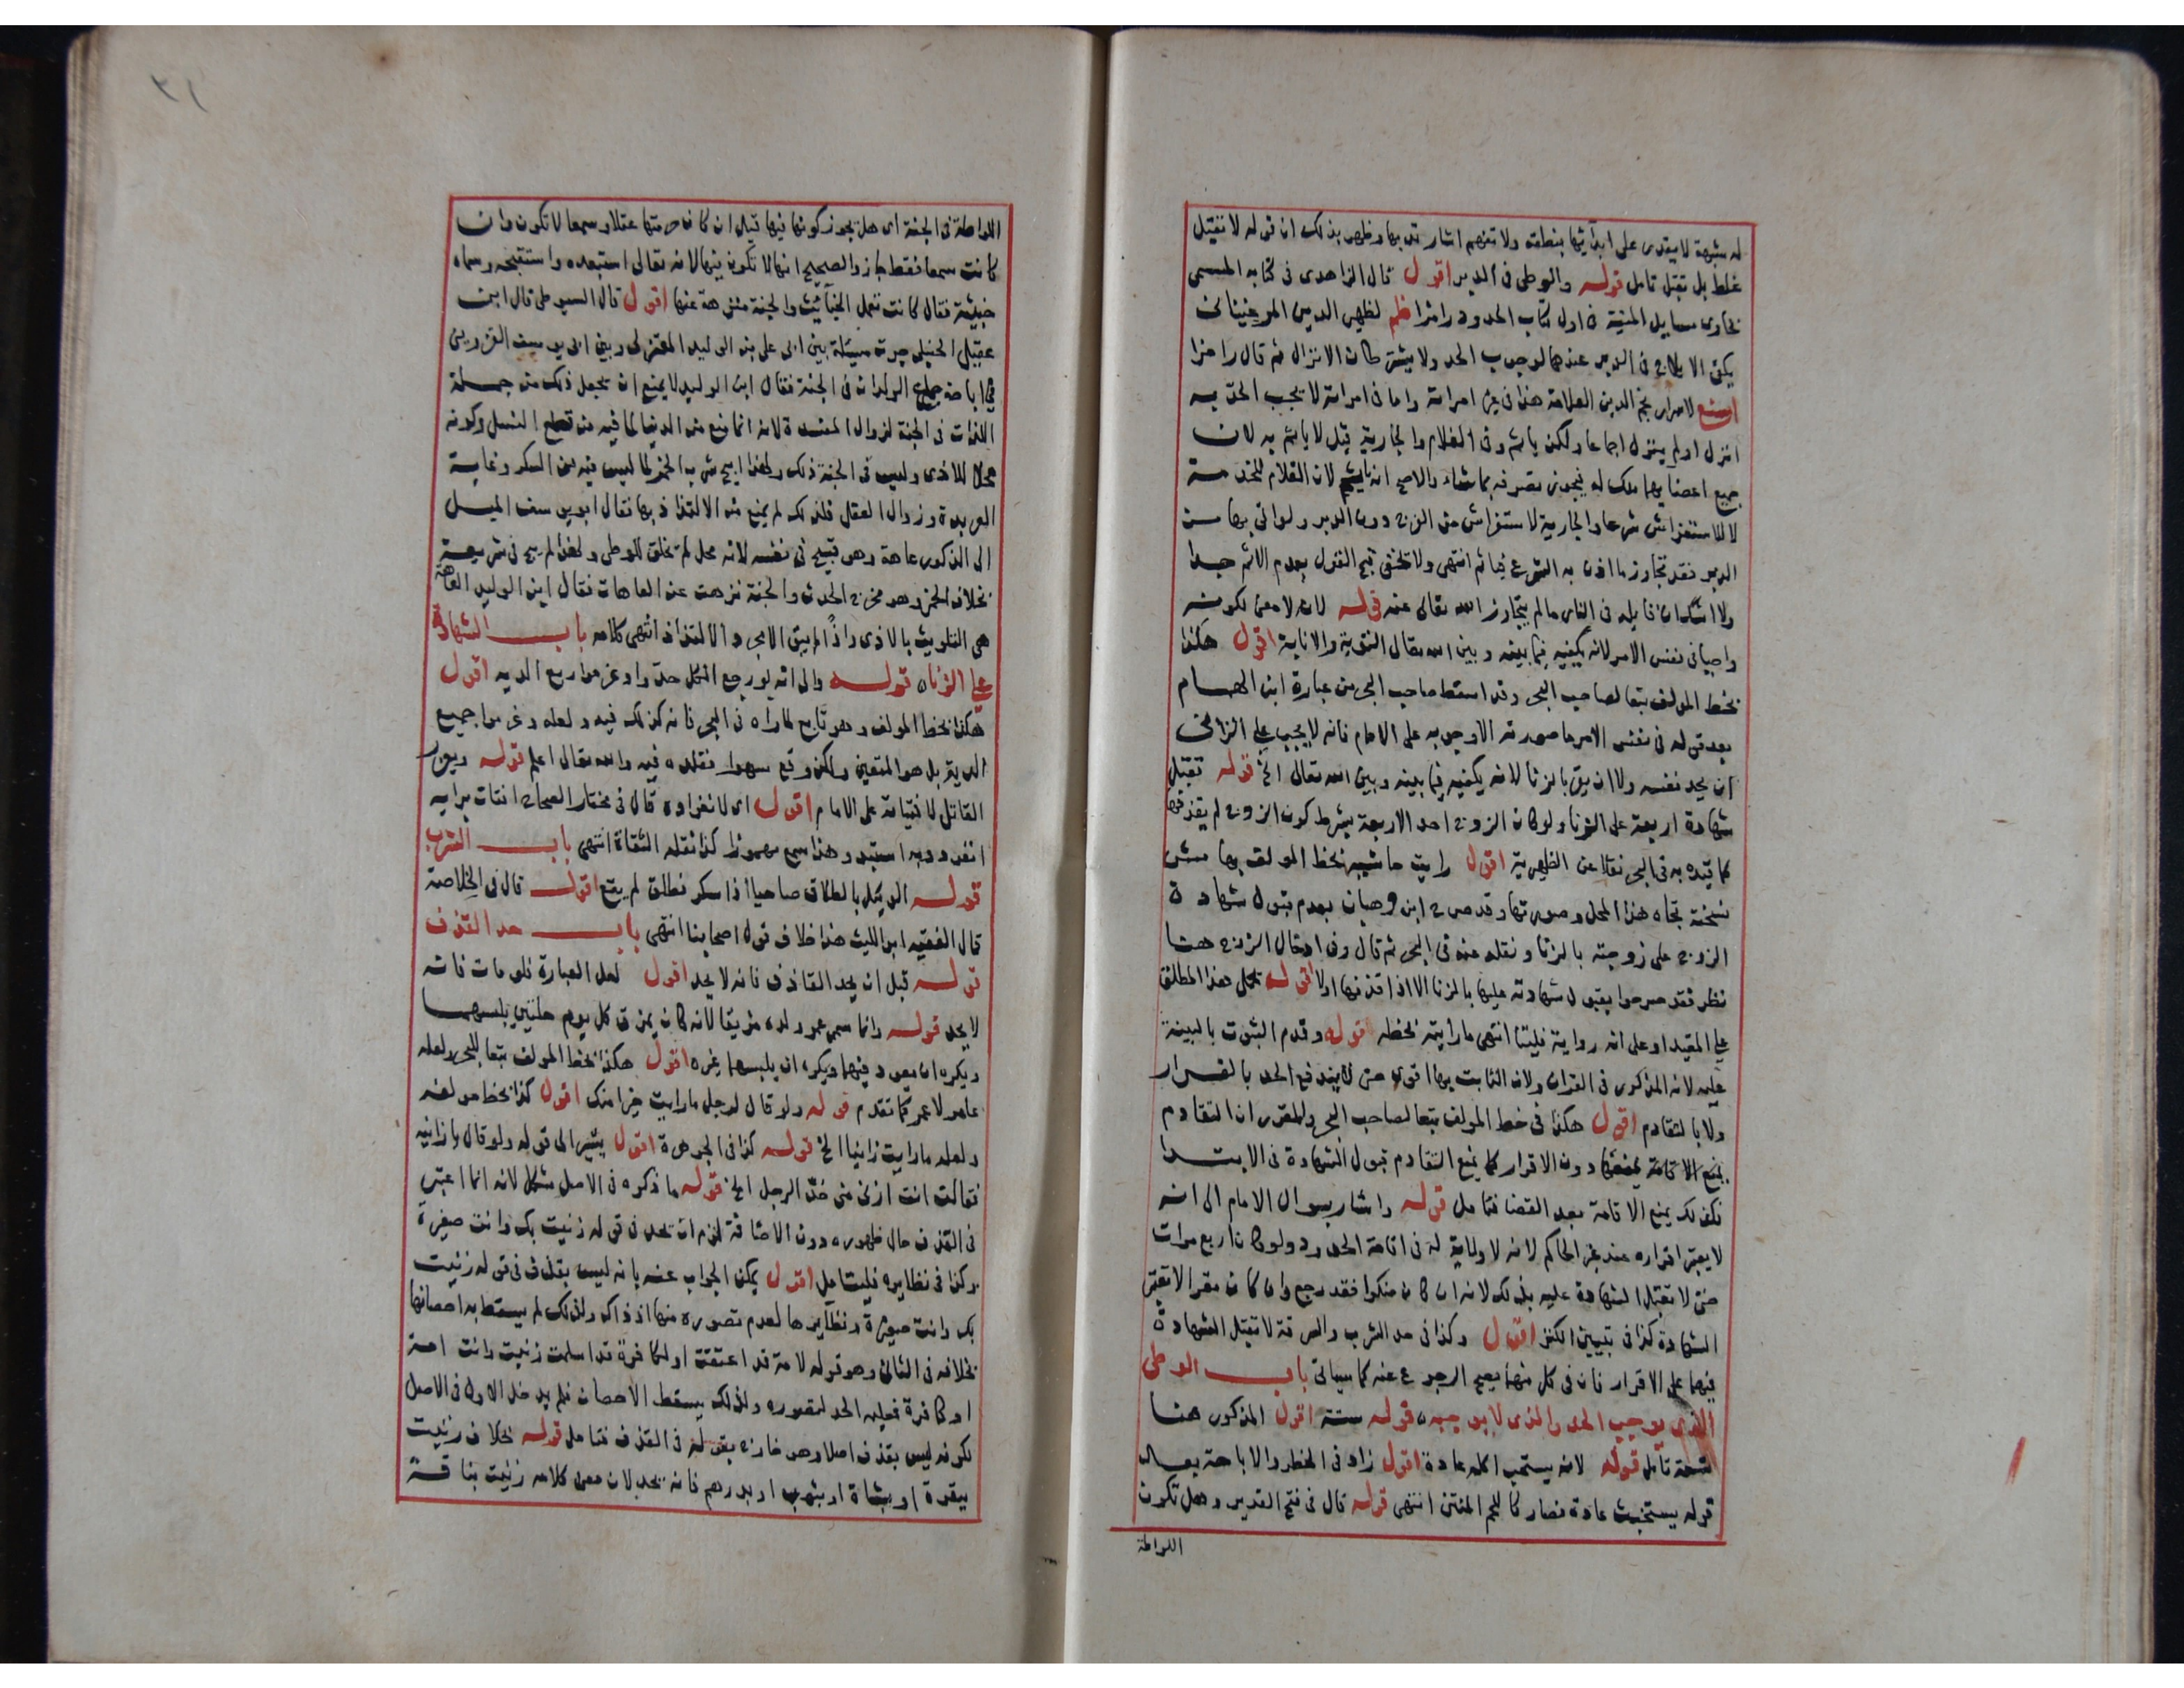 له شبهة لا يقدر على ابدائها بنطقه ولا تفهم اشارته بها وظهر بذلك ان قوله لا تقبل
غلط بل تقبل تامل قوله والوطى فى الدبر اقول قال الزاهدى فى كتابه المسمى
بحاوى مسايل المنية فى اول كتاب الحدود رامزا ظم لظهير الدين المرغينانى
يكفى الايلاج فى الدبر عندهما لوجوب الحد ولا يشترطان الانزال ثم قال رامزا
لاسرار نجم الدين العلامة هذا فى غير امراته واما فى امراته لا يجب الحد به
انزل او لم ينزل اجماعا ولكن ياثم وفى الغلام والجارية قيل لا ياثم به لان
جميع اعضايهما ملك له فيجوز تصرفه بما شاء والاصح انه ياثم لان الغلام للخدمة
لا للاستفراش شرعا والجارية لاستفراش من الفرج دون الدبر ولو اتى بها من
الدبر فقد تجاوز ما اذن به الشرع فياثم انتهى ولا تخفى قبح القول بعدم الاثم جدا
ولا اشك ان قايله فى النار ما لم يتجاوز الله تعالى عنه قوله لانه لا معنى لكونه
واجبا فى نفس الامر لانه يكفيه فيما بينه وبين الله تعالى التوبة والانابة اقول هكذا
بخط المولف تبعا لصاحب البحر وقد اسقط صاحب البحر من عبارة ابن الهمام
بعد قوله فى نفس الامر ما صورته الا وجوبه على الامام فانه لا يجب على الزانى
ان يحد نفسه ولا ان يقر بالزنا لانه يكفيه فيما بينه وبين الله تعالى الخ قوله تقبل
شهادة اربعة على الزنا ولو كان الزوج احد الاربعة بشرط كون الزوج لم يقذفها
كما قيده به فى البحر نقلا عن الظهيرية اقول رايت حاشية بخط المولف بهامش
نسخته تجاه هذا المحل وصورتها وقد صرح ابن وهبان بعدم قبول شهادة
الزوج على زوجته بالزنا ونقله عنه فى البحر ثم قال وفى ادخال الزوج هنا
نظر فقد صرحوا بقبول شهادته عليها بالزنا الا اذا قذفها اولا اقول يحمل هذا المطلق
على المقيد او على انه رواية فليتا انتهى ما رايته بخطه قوله وقدم الثبوت بالبينة
عليه لانه المذكور فى القران ولان الثابت بها اقوى حتى لا يندفع الحد بالفرار
ولا بالتقادم اقول هكذا فى خط المولف تبعا لصاحب البحر والمقرر ان التقادم
يمنع الاقامة دون الاقرار كما يمنع التقادم قبول الشهادة فى الابتدا
فكذلك يمنع الاقامة بعد القضا فتامل قوله واشار بسوال الامام الى انه
لا يعتبر اقراره عند غير الحاكم لانه لا ولاية له فى اقامة الحدود ولو كان اربع مرات
حتى لا تقبل الشهادة عليه بذلك لانه ان كان منكرا فقد رجع وان كان مقرا لا تعتبر
الشهادة كذا فى تبيين الكنز اقول وكذا فى حد الشرب والسرقة لا تقبل الشهادة
فيهما على الاقرار فان فى كل منهما يصح الرجوع عنه كما سياتى باب الوطى
الذى يوجب الحد والذى لا يوجبه قوله ستة اقول المذكور هنا
تامل قوله لانه يستخبث اكله عادة اقول زاد فى الحظر والاباحة بعد
قوله يستخبث عادة فصار كاللحم المنتن انتهى قوله قال فى فتح القدير وهل تكون
اللواطة
٣١
اللواطة فى الجنة اى هل يجوز كونها فيها قيل ان كان حرمتها عقلا وسمعا لا تكون وان
كانت سمعا فقط جاز والصحيح انها لا تكون فيها لانه تعالى استبعده واستقبحه وسماه
خبيثة فقال كانت تعمل الخبائث والجنة منزهة عنها اقول قال السيوطى قال ابن
عقيل الحنبلى جرت مسئلة بين ابى على بن الوليد المعتزلى وبين ابى يوسف القزوينى
فى اباحة جماع الولدان فى الجنة فقال ابن الوليد لا يمنع ان يجعل ذلك من جملة
اللذات فى الجنة لزوال المفسدة لانه انما منع من الدنيا لما فيه من قطع النسل وكونه
محلا للاذى وليس فى الجنة ذلك ولهذا ابيح شرب الخمر لما ليس فيه من السكر وغاية
العربدة وزوال العقل فلذلك لم يمنع من الالتذاذ بها فقال ابو يوسف الميل
الى الذكور عاهة وهو قبيح فى نفسه لانه محل لم تخلق للوطى ولهذا لم يبح فى شريعة
بخلاف الخمر وهو مخرج الحدث والجنة نزهت عن العاهات فقال ابن الوليد العاهة
هى التلويث بالاذى واذا لم يبق الامجرد الالتذاذ انتهى كلامه باب الشهادة
على الزنا قوله والى انه لو رجع الكل حدوا وغرموا ربع الدية اقول
هكذا بخط المولف وهو تابع لما راه فى البحر فانه كذلك فيه ولعله وغرموا جميع
الدية بل هو المتعين ولكن وقع سهوا فقلده فيه والله تعالى اعلم قوله ويعزر
القاتل لافتياته على الامام اقول اى لانفراده قال فى مختار الصحاح افتات برايه
انفرد وبه استبد وهذا سمع مهموزا كذا نقله الثقاة انتهى باب الشرب
قوله الوكيل بالطلاق صاحيا اذا سكر فطلق لم يقع اقول قال فى الخلاصة
قال الفقيه ابو الليث هذا خلاف قول اصحابنا انتهى باب حد القذف
قوله قبل ان يحد القاذف فانه لا يحد اقول لعل العبارة فلو مات فانه
لا يحد قوله وانما سمى عمرو لده مزيقا لانه كان يمزق كل يوم حلتين يلبسهما
ويكره ان يعود فيهما ويكره ان يلبسهما غيره اقول هكذا بخط المولف تبعا للبحر ولعله
عامر لا عمرو كما تقدم قوله ولو قال لرجل ما رايت خيرا منك اقول كذا بخط مولفه
ولعله ما رايت زانيا الخ قوله كذا فى الجوهرة اقول يشير الى قوله ولو قال يا زانية
فقالت انت ازنى منى حد الرجل الخ قوله ما ذكره فى الاصل مشكل لانه انما اعتبر
فى القذف حال ظهوره دون الاضافة لزم ان تحد فى قوله زنيت بك وانت صغيرة
وكذا فى نظايره فليتامل اقول يمكن الجواب عنه بانه ليس بقذف فى قوله زنيت
بك وانت صغيرة ونظايرها لعدم تصوره منها اذ ذاك ولذلك لم يسقط به احصانها
بخلافه فى الثانى وهو قوله لامة قد اعتقت او لكافرة قد اسلمت زنيت وانت امة
او كافرة فعليه الحد لتصوره ولذلك يسقط الاحصان فلم يدخل الاول فى الاصل
لكونه ليس بقذف اصلا وهو خارج بقوله فى القذف فتامل قوله بخلاف زنيت
ببقرة او بشاة او بثوب او بدرهم فانه يحد لان معنى كلامه زنيت بناقة